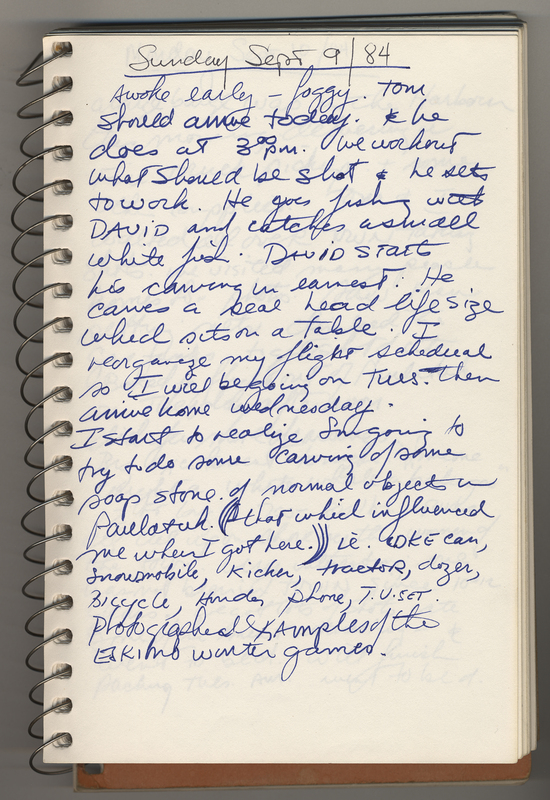 Sunday Sept 9/84
Awoke early – foggy. Tom
should arrive today. & he
does at 3:00 pm. We workout
what should be shot & he sets
to work. He goes fishing with
DAVID and catches a small
white fish. DAVID starts
his carving in earnest. He
carves a seal head life size
which sits on a table. I
reorganize my flight schedual
so I will be going on Tues. then
arrive home wednesday.
I start to realize Im going to
try to do some carving of some
soap stone. of normal objects in
Paulatuk. (that which influenced
me when I got here.)) ie. COKE can,
Snowmobile, Kicker, tractor, dozer,
Bicycle, Honda, phone, T.V. SET.
Photographed Examples of the
ESKIMO winter games.